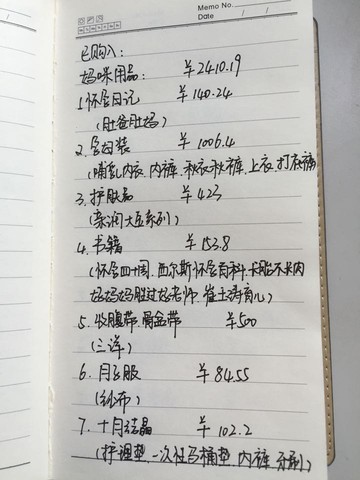 Memo No.
Date / /
已购入:
妈咪用品: ¥2410.19
1.怀孕日记 ¥140.24
(肚爸肚妈)
2.孕妇装 ¥1006.4
(哺乳内衣.内裤.秋衣秋裤.上衣.打衣裤)
3.护肤品 ¥423
(亲润大豆系列)
4.书籍 ¥153.8
(怀孕四十周.西尔斯怀孕百科.卡胎不卡肉
好妈妈胜过好老师.崔玉涛育儿)
5.收腹带.骨盆带 ¥500
(三洋)
6.月子服 ¥84.55
(纱布)
7.十月结晶 ¥102.2
(护理垫.一次性马桶垫.内裤.牙刷)